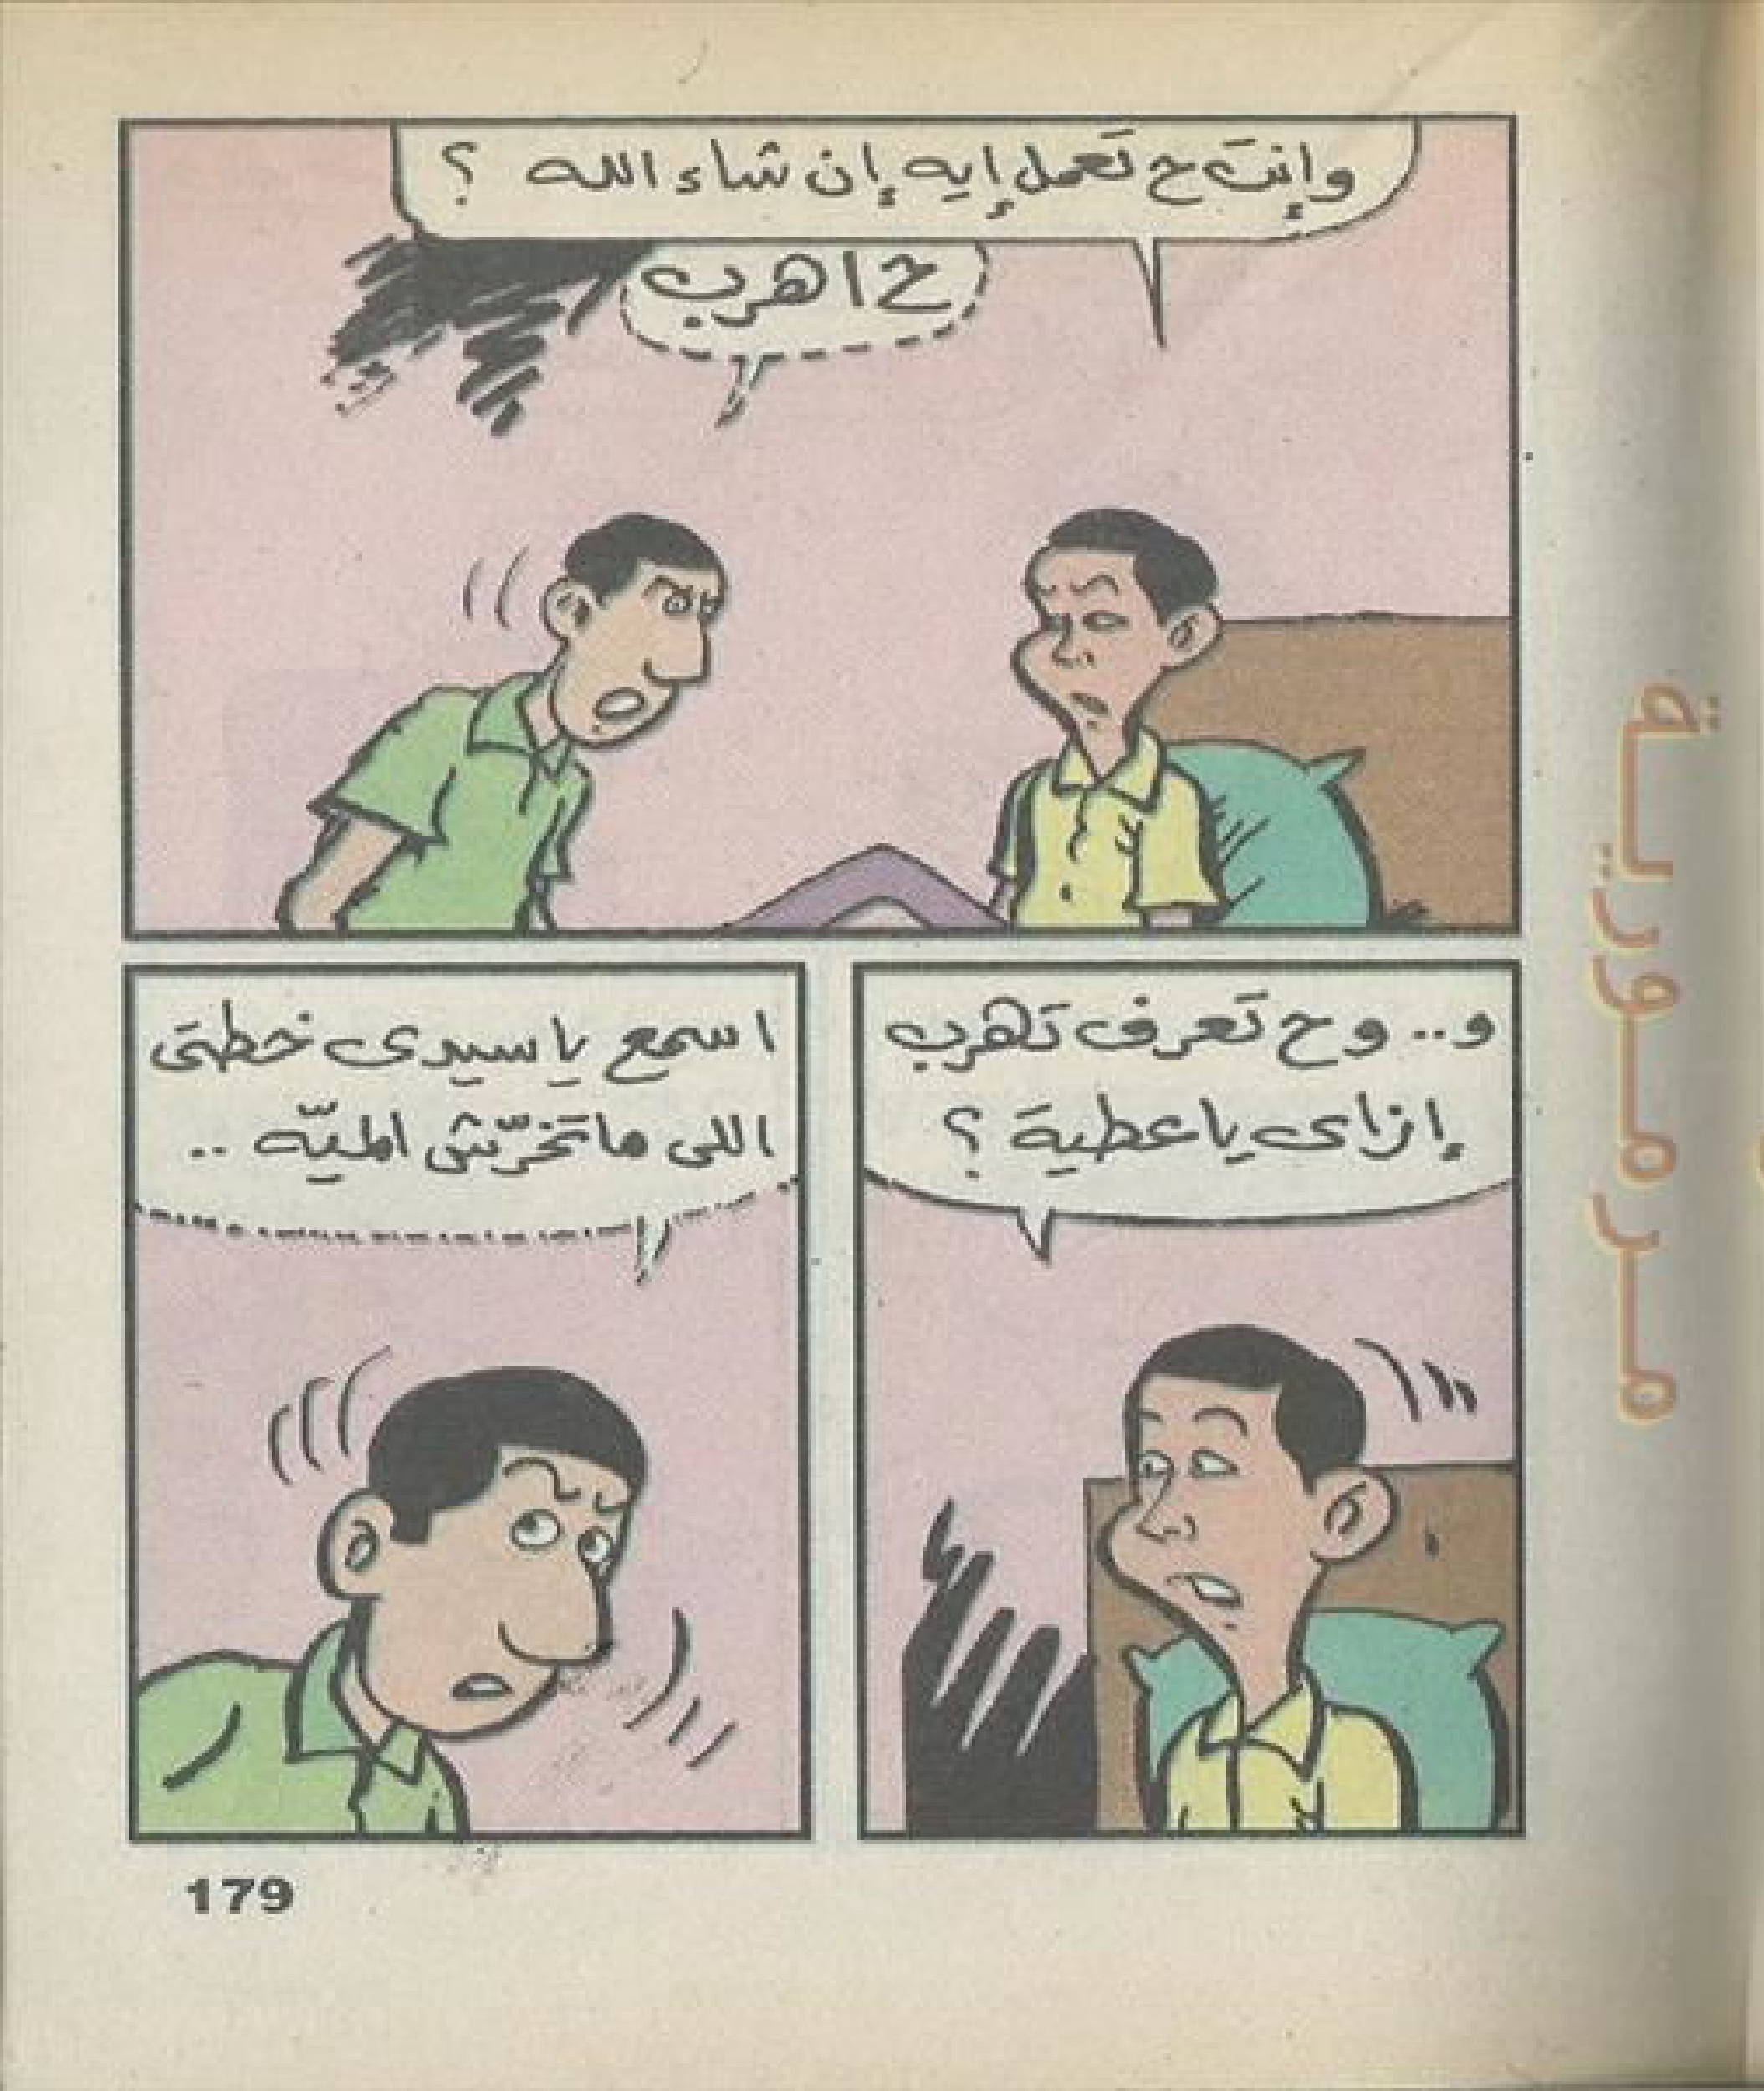 وإنتَ ح تَعمل إيه إن شاء الله ؟
ح اهرب
و.. وح تَعرف تَهرب
إزاى يا عطيةَ ؟
اسمع يا سيدى خطتى
اللى ماتخرّش الميّه ..
مرمورية
179